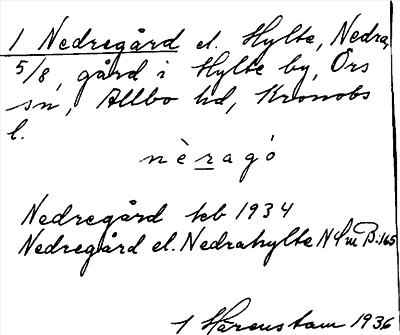 1 Nedregård el. Hylte, Nedra,
5/8, gård i Hylte by, Örs
sn, Allbo hd, Kronobs
l.
nèragó
Nedregård keb 1934
Nedregård el. Nedrahylte NSmB:165
1 Härenstam 1936